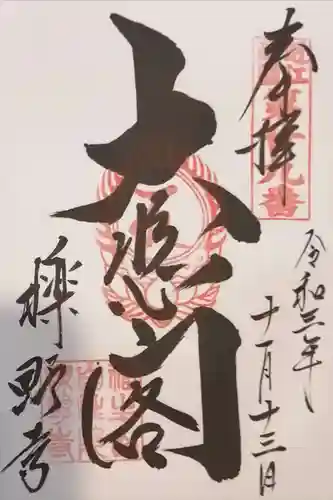 奉拝
令和三年
十一月十三日
大悲閣
櫟野寺